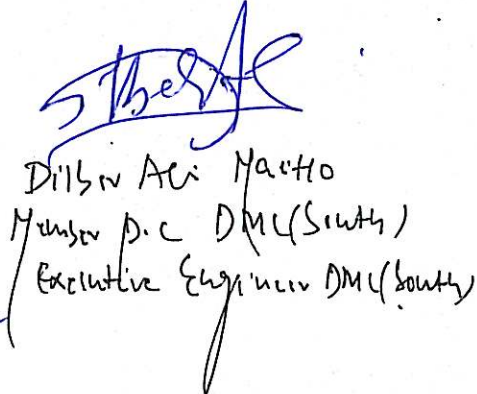 Dilber Ali
Member P.C DMC(South)
Executive Engineer DMC(South)